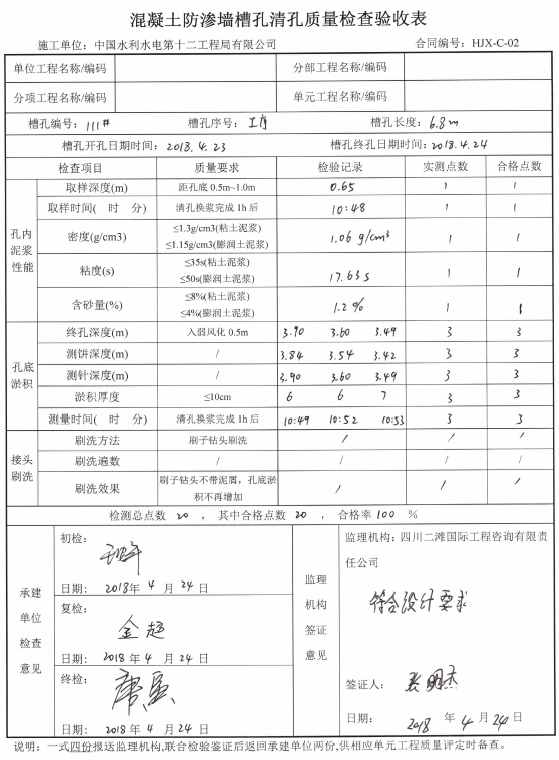 混凝土防渗墙槽孔清孔质量检查验收表
施工单位：中国水利水电第十二工程局有限公司 合同编号：HJX-C-02
单位工程名称/编码 分部工程名称/编码
分项工程名称/编码 单元工程名称/编码
槽孔编号：111# 槽孔序号：I序 槽孔长度：6.8m
槽孔开孔日期时间：2018.4.23 槽孔终孔日期时间：2018.4.24
检查项目 质量要求 检验记录 实测点数 合格点数
孔内泥浆性能
取样深度(m) 距孔底 0.5m~1.0m 0.65 1 1
取样时间( 时 分) 清孔换浆完成 1h 后 10:48 1 1
密度(g/cm3) ≤1.3g/cm3(粘土泥浆) ≤1.15g/cm3(膨润土泥浆) 1.06 g/cm3 1 1
粘度(s) ≤35s(粘土泥浆) ≤50s(膨润土泥浆) 17.63s 1 1
含砂量(%) ≤8%(粘土泥浆) ≤4%(膨润土泥浆) 1.2% 1 1
孔底淤积
终孔深度(m) 入弱风化 0.5m 3.90 3.60 3.49 3 3
测饼深度(m) / 3.84 3.54 3.42 3 3
测针深度(m) / 3.90 3.60 3.49 3 3
淤积厚度 ≤10cm 6 6 7 3 3
测量时间( 时 分) 清孔换浆完成 1h 后 10:49 10:52 10:53 3 3
接头刷洗
刷洗方法 刷子钻头刷洗 / / /
刷洗遍数 / / / /
刷洗效果 刷子钻头不带泥屑，孔底淤积不再增加 / / /
检测总点数 20 ，其中合格点数 20 ，合格率 100 %
承建单位检查意见
初检：
日期： 2018年 4 月 24 日
复检：
金超
日期： 2018年 4 月 24 日
终检：
日期： 2018年 4 月 24 日
监理机构签证意见
监理机构：四川二滩国际工程咨询有限责
任公司
符合设计要求
签证人：
日期： 2018 年 4 月 24 日
说明：一式四份报送监理机构,联合检验签证后返回承建单位两份,供相应单元工程质量评定时备查。